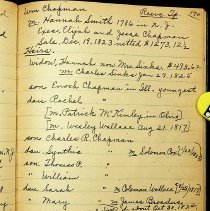 Wm Chapman Reeve Tp. 170
m Hannah Smith 1786 in N.J.
Exrs. Elijah and Jesse Chapman
Sale, Dec. 19, 1823 netted $1272,12½
Heirs.
Widow, Hannah now Mrs Sinks. $423.62
m Charles Sinks Jan 29, 1825
son Enoch Chapman in Ill. youngest
dau Rachel
[m Patrick McKinley in Ohio]
[m. Wesley Wallace Aug 21. 1817]
son Charles R. Chapman
dau. Synthia m Solomon Cox
son Thomas P.
" William
dau Sarah m Coleman Wallace
" Mary m James Broadus